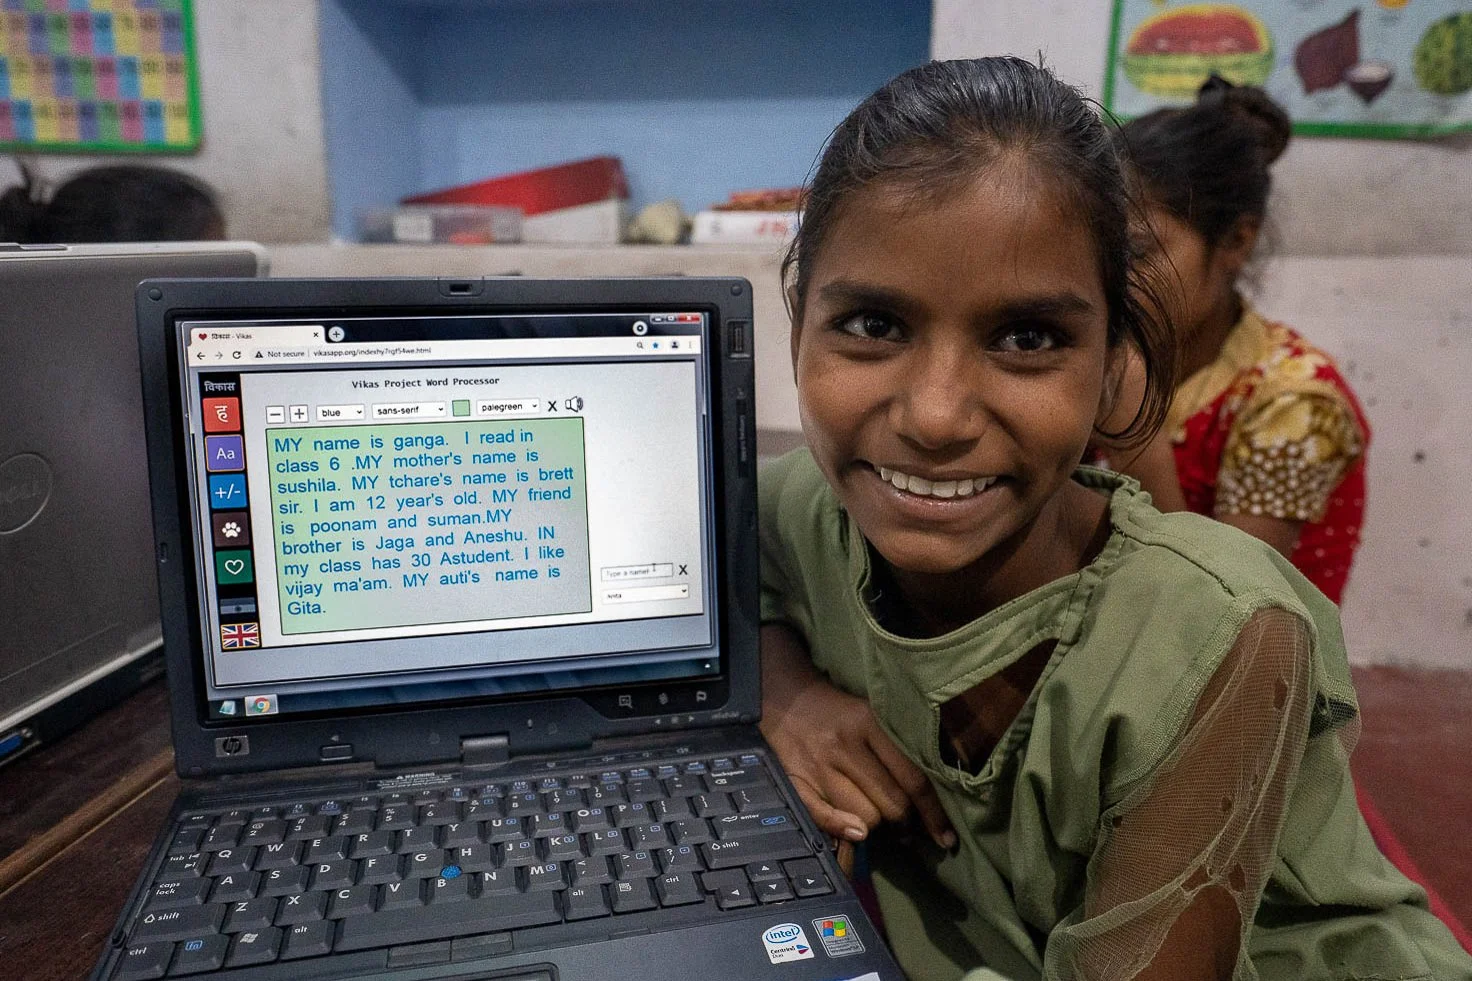 विकास - Vikas
Not secure | vikasapp.org/indexhy7rgf54we.html
विकास
Vikas Project Word Processor
ह
Aa
+/-
blue
sans-serif
palegreen
X
MY name is ganga. I read in
class 6 .MY mother's name is
sushila. MY tchare's name is brett
sir. I am 12 year's old. MY friend
is poonam and suman.MY
brother is Jaga and Aneshu. IN
my class has 30 Astudent. I like
vijay ma'am. MY auti's name is
Gita.
Type a name!
X
Anita
hp
WARNING
backspace
Q W E R T Y U I O P
enter
tab
A S D F G H J K L
shift
caps lock
Z X C V B N M
shift
ctrl fn alt alt ctrl
intel
Centrino
Duo